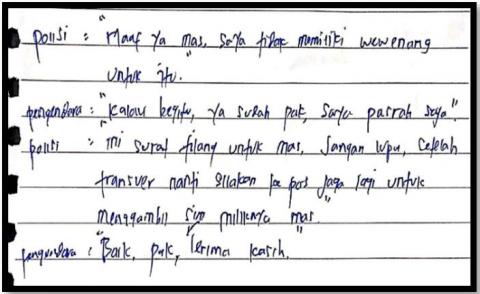 polisi : "Maaf ya mas, saya tidak memiliki wewenang
untuk itu."
pengendara : "Kalau begitu, ya sudah pak, saya pasrah saja."
polisi : "ini surat tilang untuk mas, jangan lupa, setelah
transver nanti silakan ke pos jaga lagi untuk
menggambil sim miliknya mas."
pengendara : "Baik, pak, terima kasih."